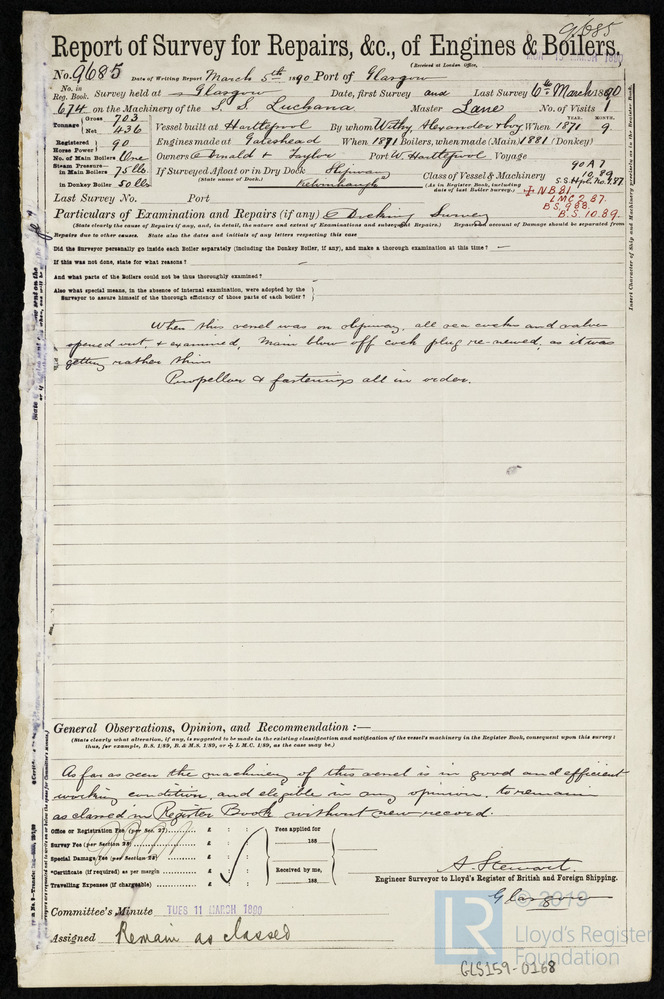 9685
Report of Survey for Repairs, &c., of Engines & Boilers.
(Received at London Office,
MON 10 MARCH 1890
No. 9685 Date of Writing Report March 5th 1890 Port of Glasgow
No. in Reg. Book. Survey held at Glasgow Date, first Survey and Last Survey 6th March 1890
674 on the Machinery of the S. S. Luchana Master Lane No. of Visits 1
Tonnage Gross 703 Net 436 Vessel built at Hartlepool By whom Withy, Alexander & Coy When 1871 YEAR. MONTH. 9.
Registered Horse Power 90 Engines made at Gateshead When 1871 Boilers, when made (Main) 1881 (Donkey)
No. of Main Boilers One Owners Arnald & Taylor Port W. Hartlepool Voyage
Steam Pressure— in Main Boilers 75 lbs. If Surveyed Afloat or in Dry Dock Slipway
in Donkey Boiler 50 lbs (State name of Dock.) Kelvinhaugh
Class of Vessel & Machinery 90 A 1
(As in Register Book, including date of last Boiler Survey.) 10.89
S.S. Hpl. No. 9.87
+ N B 81
LMC 9.87
B.S. 9.88.
B.S. 10.89.
Last Survey No. Port
Particulars of Examination and Repairs (if any) Docking Survey
(State clearly the cause of Repairs if any, and, in detail, the nature and extent of Examinations and subsequent Repairs.) Repairs on account of Damage should be separated from
Repairs due to other causes. State also the dates and initials of any letters respecting this case
Did the Surveyor personally go inside each Boiler separately (including the Donkey Boiler, if any), and make a thorough examination at this time? —
If this was not done, state for what reasons? —
And what parts of the Boilers could not be thus thoroughly examined?
Also what special means, in the absence of internal examination, were adopted by the
Surveyor to assure himself of the thorough efficiency of those parts of each boiler?
Insert Character of Ship and Machinery precisely as in the Register Book.
When this vessel was on slipway, all sea cocks and valves
opened out, & examined, Main blow off cock plug re-newed, as it was
getting rather thin
Propeller & fastenings all in order.
General Observations, Opinion, and Recommendation :—
(State clearly what alteration, if any, is suggested to be made in the existing classification and notification of the vessel's machinery in the Register Book, consequent upon this survey;
thus, for example, B.S. 1/89, B. & M.S. 1/89, or + L.M.C. 1/89, as the case may be.)
As far as seen the machinery of this vessel is in good and efficient
working condition, and eligible in my opinion, to remain
as classed in Register Book without new record.
Office or Registration Fee (per Sec. 27) £ : : Fees applied for
Survey Fee (per Section 28) £ : : 188
Special Damage Fee (per Section 28) £ : :
*Certificate (if required) as per margin £ : : Received by me,
Travelling Expenses (if chargeable) £ : : 188
A. Stewart
Engineer Surveyor to Lloyd's Register of British and Foreign Shipping.
Glasgow
Committee's Minute TUES 11 MARCH 1890
Assigned Remain as classed
© 2019
LR
Lloyd's Register
Foundation
GLS159-0168